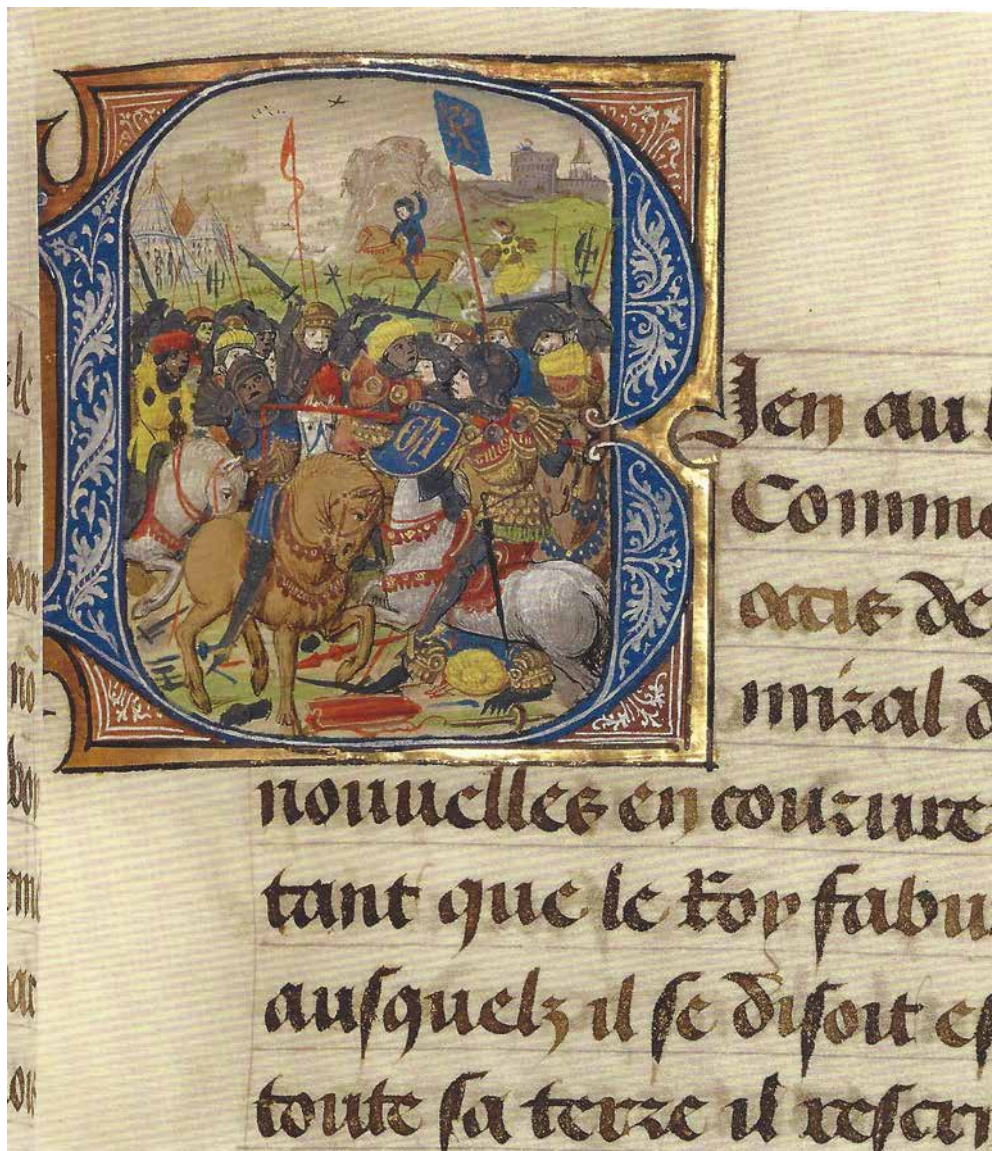 BJen au
Comme
de
miral d
nouuelles en courure
tant que le Roy fabu
ausquelz il se disoit es
toute sa terre il rescri